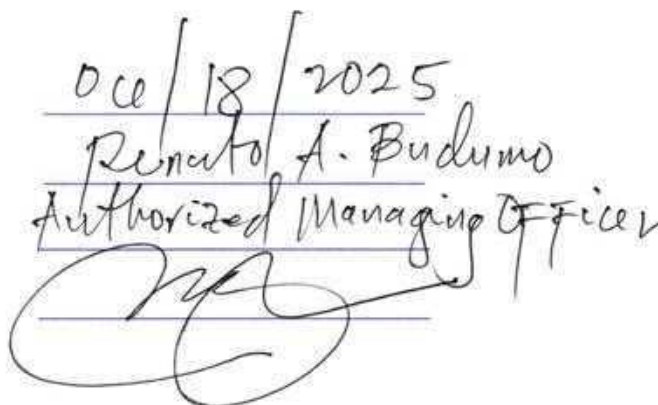 Oct/18/2025
Renato A. Budumo
Authorized Managing Officer